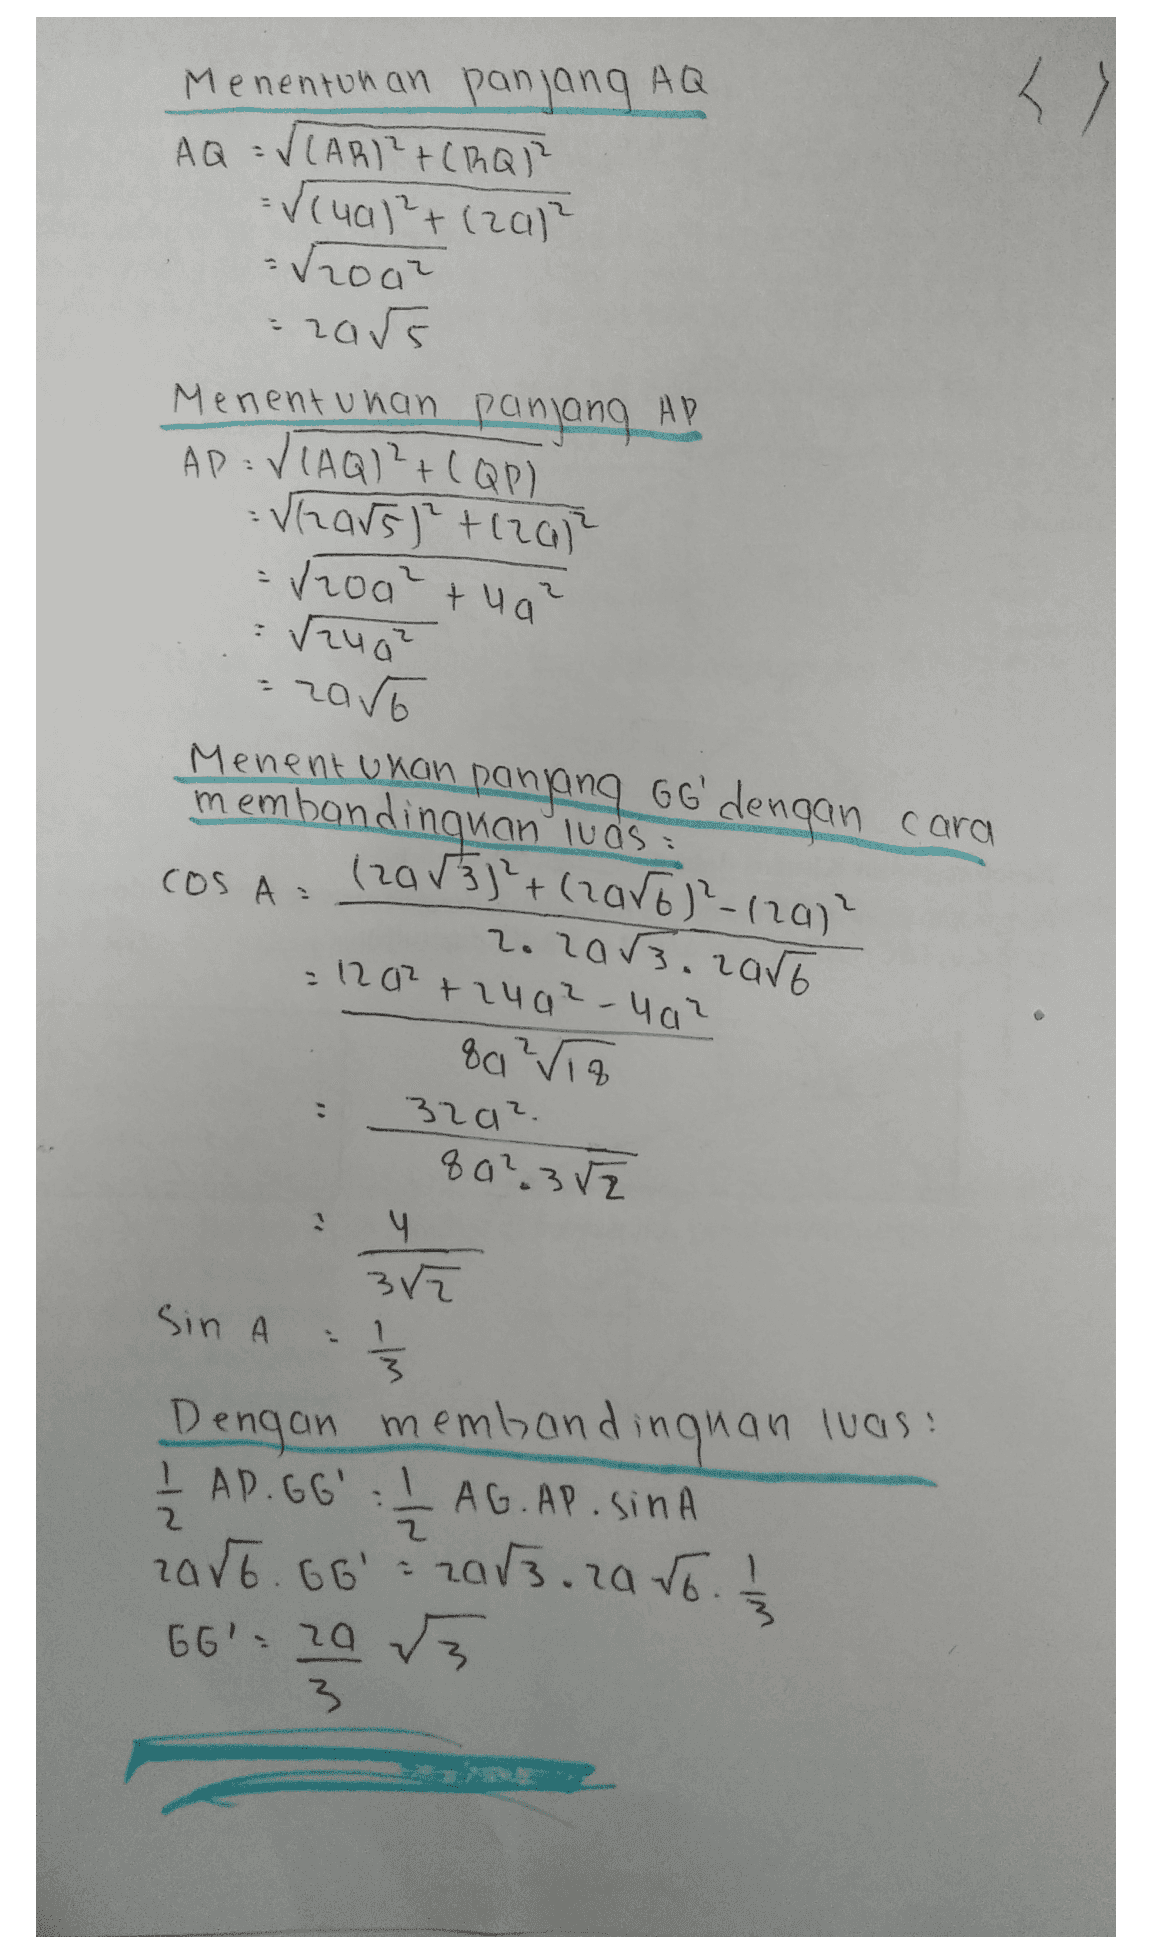 Menentukan panjang AQ
AQ = √(AR)² + (RQ)²
= √(4a)² + (2a)²
= √20a²
= 2a√5
Menentukan panjang AP
AP = √(AQ)² + (QP)
= √(2a√5)² + (2a)²
= √20a² + 4a²
= √24a²
= 2a√6
Menentukan panjang GG' dengan cara
membandingkan luas :
cos A = (2a√3)² + (2a√6)² - (2a)²
2. 2a√3 . 2a√6
= 12a² + 24a² - 4a²
8a²√18
= 32a².
8a².3√2
= 4
3√2
Sin A = 1/3
Dengan membandingkan luas :
1/2 AP.GG' = 1/2 AG.AP.sinA
2a√6 . GG' = 2a√3 . 2a√6 . 1/3
GG' = 2a/3 √3